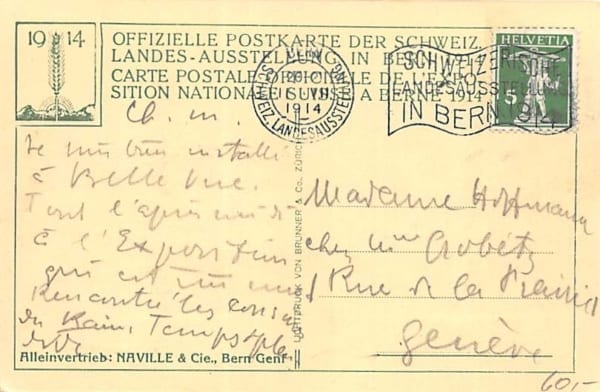 1914
OFFIZIELLE POSTKARTE DER SCHWEIZ.
LANDES-AUSSTELLUNG IN BERN 1914
CARTE POSTALE OFFICIELLE DE L'EXPO-
SITION NATIONALE SUISSE A BERNE 1914
BERN
1914
SCHWEIZ. LANDESAUSSTELLUNG
SCHWEIZERISCHE
LANDESAUSSTELLUNG
IN BERN 1914
HELVETIA
5
Ch. m.
Je suis bien installé
à Belle Vue.
Tout l'après midi
à l'Exposition
qui est
Rencontré les
du
Madame Hoffmann
chez Mme
Rue de la
Genève
LICHTDRUCK VON BRUNNER & Co., ZÜRICH
Alleinvertrieb: NAVILLE & Cie., Bern Genf
60,-